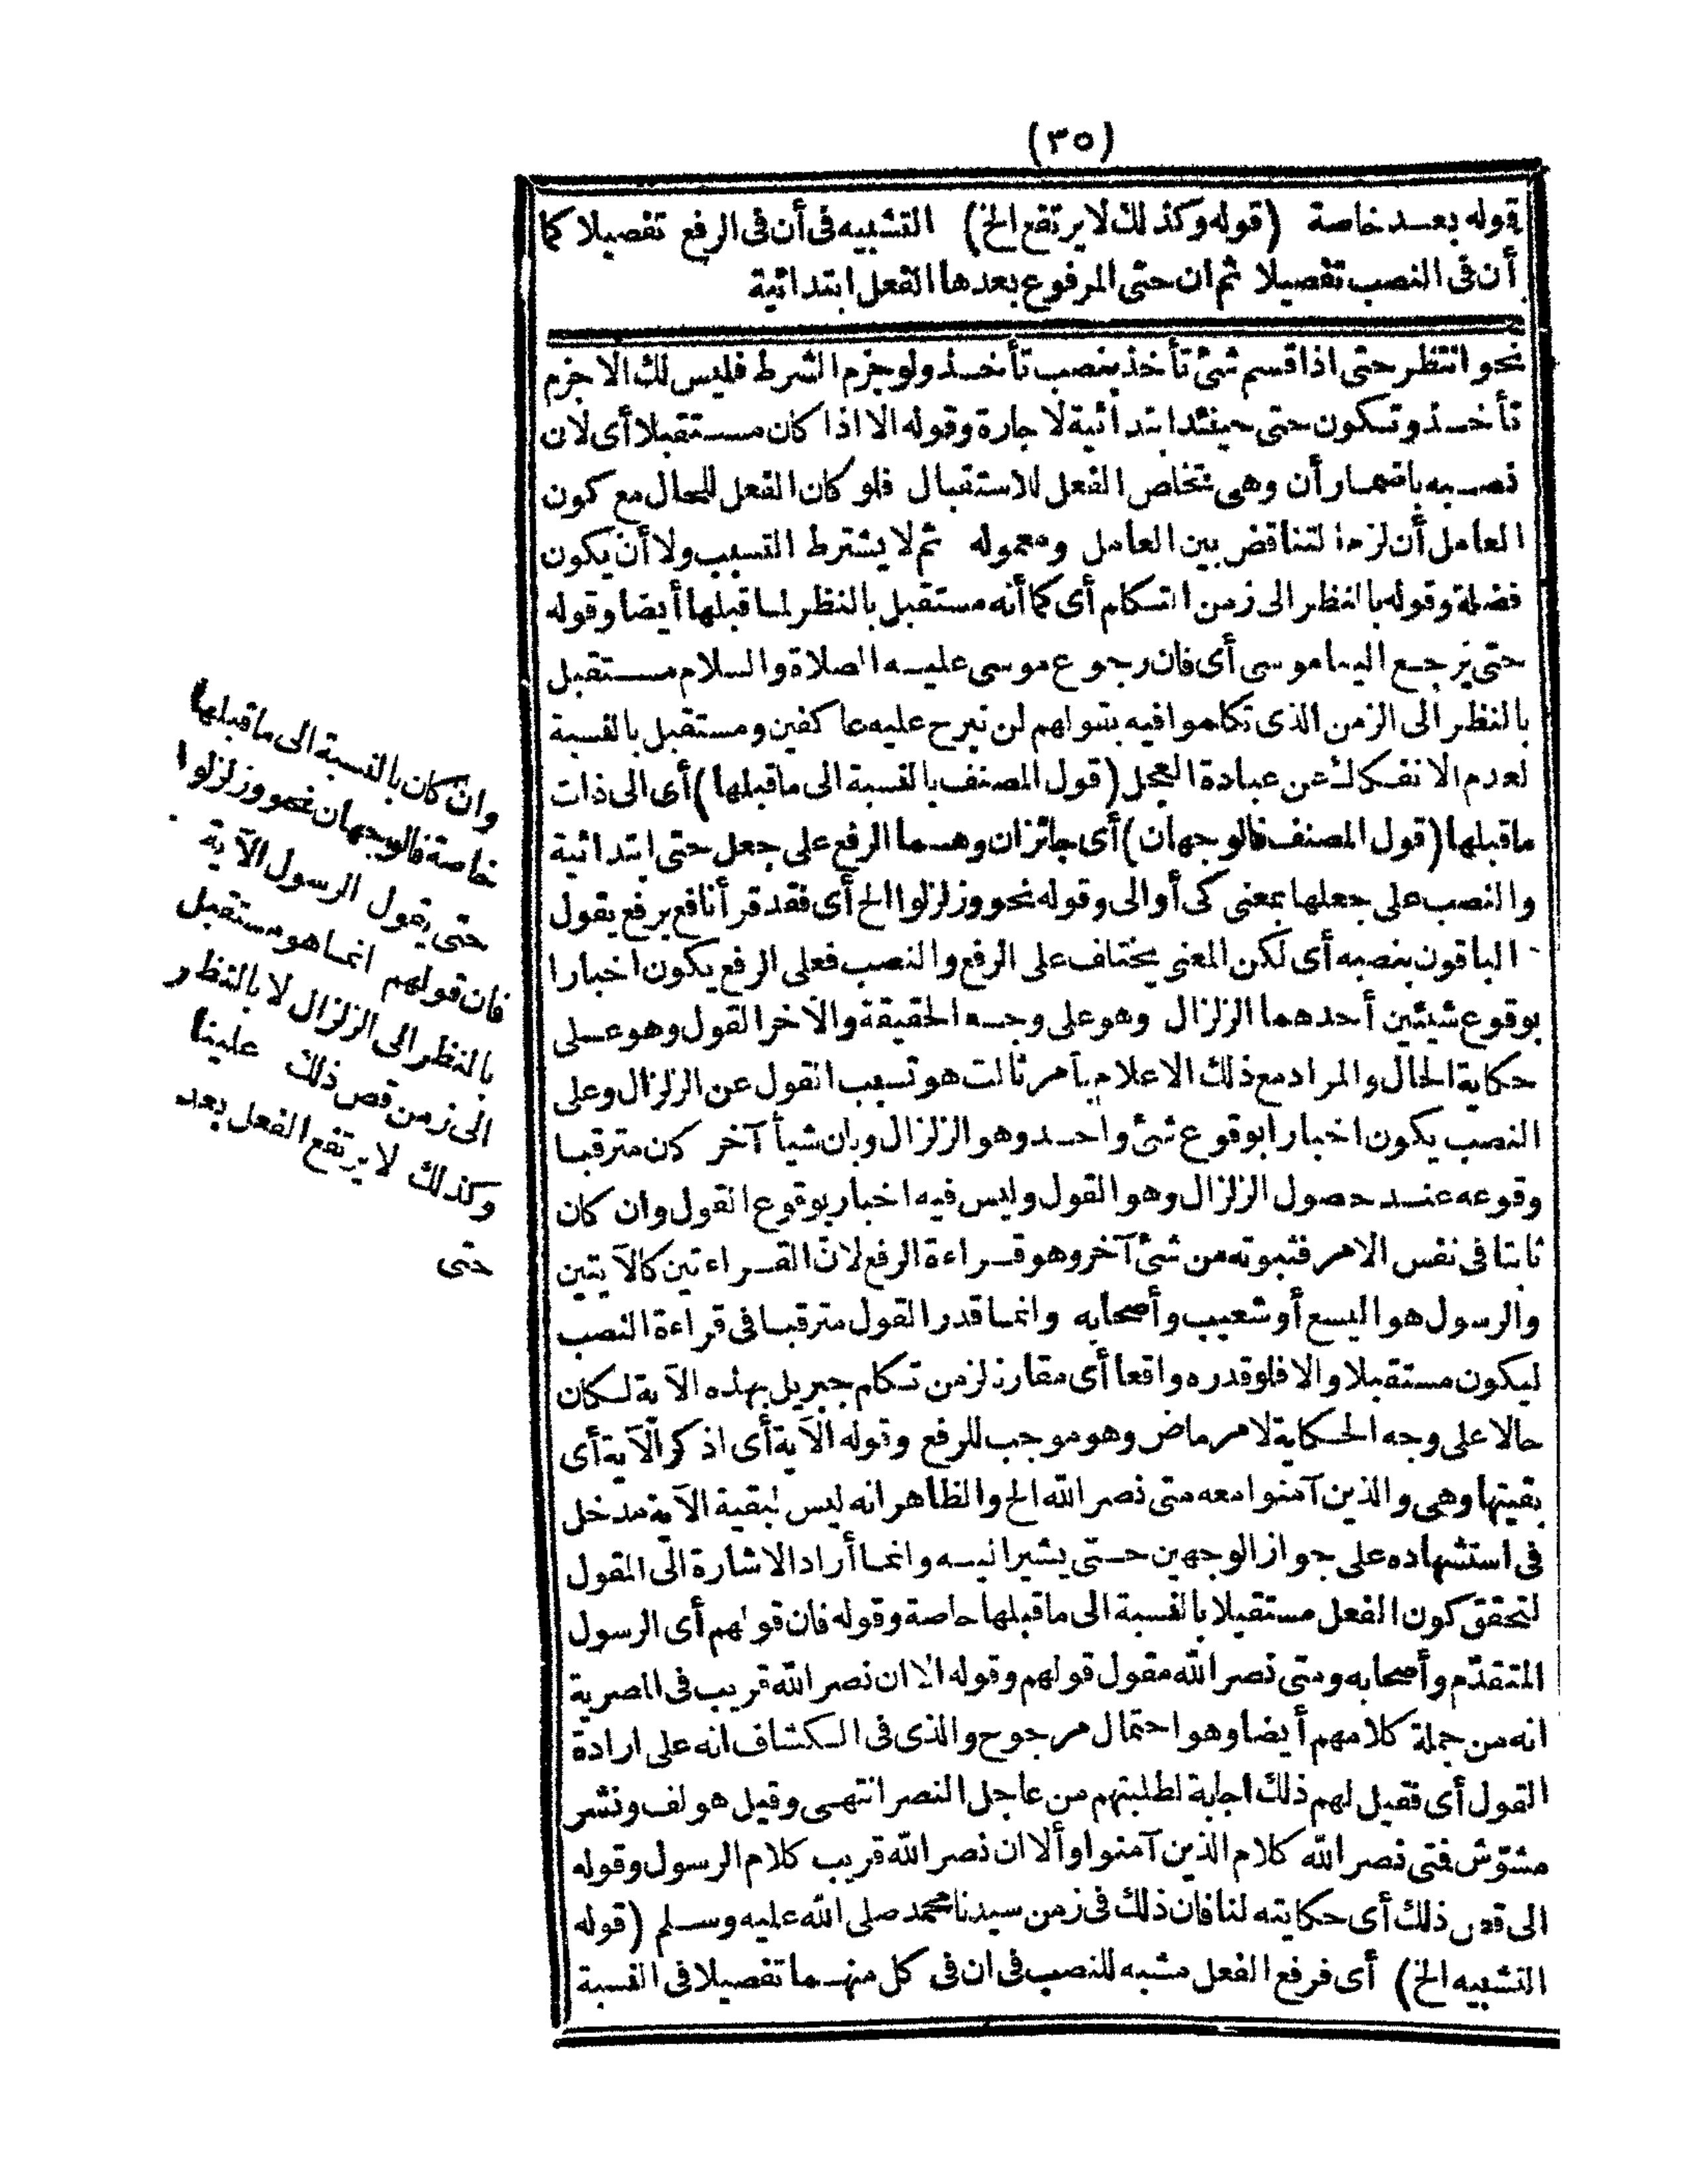 (٣٥)
قوله بعد خاصة (قوله وكذلك لا يرتفع الخ) التشبيه فى أن فى الرفع تفصيلا كما
أن فى النصب تفصيلا ثم ان حتى المرفوع بعدها الفعل ابتدائية
نحو انتظر حتى اذا قسم شئ تأخذ بنصب تأخذ ولو جزم الشرط فليس لك الا جزم
تأخذ وتكون حتى حينئذ ابتدائية لا جارة وقوله الا اذا كان مستقبلا أى لان
نصبه باضمار أن وهى تخلص الفعل للاستقبال فلو كان الفعل للحال مع كون
العامل أن لزم التناقض بين العامل ومعموله ثم لا يشترط التسبب ولا أن يكون
فضلة وقوله بالنظر الى زمن التكلم أى كما أنه مستقبل بالنظر لما قبلها أيضا وقوله
حتى يرجع الينا موسى أى فان رجوع موسى عليه الصلاة والسلام مستقبل
بالنظر الى الزمن الذى تكلموا فيه بقولهم لن نبرح عليه عاكفين ومستقبل بالنسبة
لعدم الانفكاك عن عبادة العجل (قول المصنف بالنسبة الى ما قبلها) أى الى ذات
ما قبلها (قول المصنف فالوجهان) أى جائزان وهما الرفع على جعل حتى ابتدائية
والنصب على جعلها بمعنى كى أو الى وقوله نحو وزلزلوا الخ أى فقد قرأ نافع برفع يقول
الباقون بنصبه أى لكن المعنى يختلف على الرفع والنصب فعلى الرفع يكون اخبارا
بوقوع شيئين أحدهما الزلزال وهو على وجه الحقيقة والآخر القول وهو على
حكاية الحال والمراد مع ذلك الاعلام بأمر ثالث هو تسبب القول عن الزلزال وعلى
النصب يكون اخبارا بوقوع شئ واحد وهو الزلزال وبان شيأ آخر كان مترقبا
وقوعه عند حصول الزلزال وهو القول وليس فيه اخبار بوقوع القول وان كان
ثابتا فى نفس الامر فثبوته من شئ آخر وهو قراءة الرفع لانّ القراءتين كالآيتين
والرسول هو اليسع أو شعيب وأصحابه وانما قدر القول مترقبا فى قراءة النصب
ليكون مستقبلا والا فلو قدره واقعا أى مقارنا لزمن تكلم جبريل بهذه الآية لكان
حالا على وجه الحكاية لامر ماض وهو موجب للرفع وقوله الآية أى اذكر الآية أى
بقيتها وهى والذين آمنوا معه متى نصر الله الخ والظاهر انه ليس لبقية الآية مدخل
فى استشهاده على جواز الوجهين حتى يشير اليه وانما أراد الاشارة الى المقول
لتحقق كون الفعل مستقبلا بالنسبة الى ما قبلها خاصة وقوله فان قولهم أى الرسول
المتقدّم وأصحابه ومتى نصر الله مقول قولهم وقوله الا ان نصر الله قريب فى المصرية
انه من جملة كلامهم أيضا وهو احتمال مرجوح والذى فى الكشاف انه على ارادة
القول أى فقيل لهم ذلك اجابة لطلبتهم من عاجل النصر انتهى وقيل هو لف ونشر
مشوّش فتى نصر الله كلام الذين آمنوا وألا ان نصر الله قريب كلام الرسول وقوله
الى قص ذلك أى حكايته لنا فان ذلك فى زمن سيدنا محمد صلى الله عليه وسلم (قوله
التشبيه الخ) أى فرفع الفعل مشبه للنصب فى ان فى كل منهما تفصيلا فى النسبة
وان كان بالنسبة الى ما قبلها
خاصة فالوجهان نحو وزلزلوا
حتى يقول الرسول الآية
فان قولهم انما هو مستقبل
بالنظر الى الزلزال لا بالنظر
الى زمن قص ذلك علينا
وكذلك لا يرتفع الفعل بعد
حتى